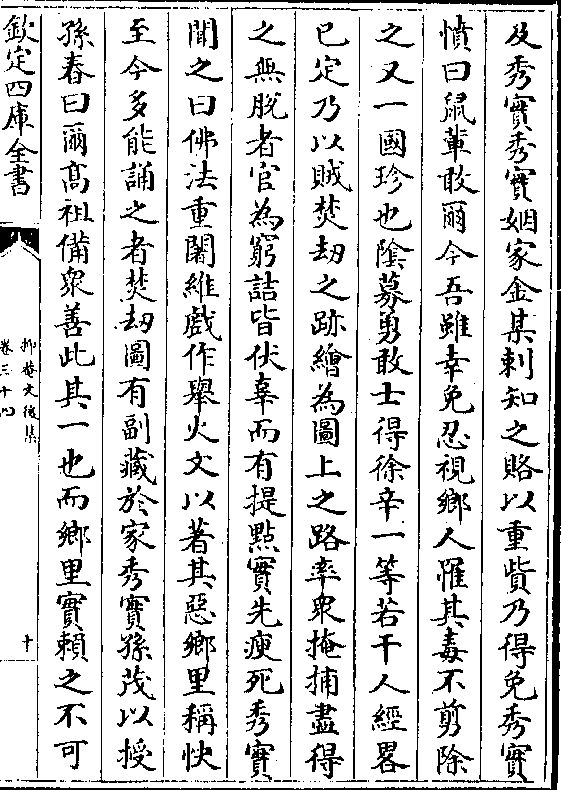 及秀實秀實姻家金某刺知之賂以重貲乃得免秀實
憤曰鼠軰敢爾今吾雖幸免忍視鄉人罹其毒不剪除
之又一國珍也隂募勇敢士得徐辛一等若干人經畧
已定乃以賊焚刼之跡繪為圖上之路率衆掩捕盡得
之無脫者官為窮詰皆伏辜而有提㸃實先瘐死秀實
聞之曰佛法重闍維戲作舉火文以著其惡鄉里稱快
至今多能誦之者焚刼圖有副藏於家秀實孫茂以授
孫春曰爾髙祖備衆善此其一也而鄉里實賴之不可
欽定四庫全書
抑菴文後集
卷三十四
十